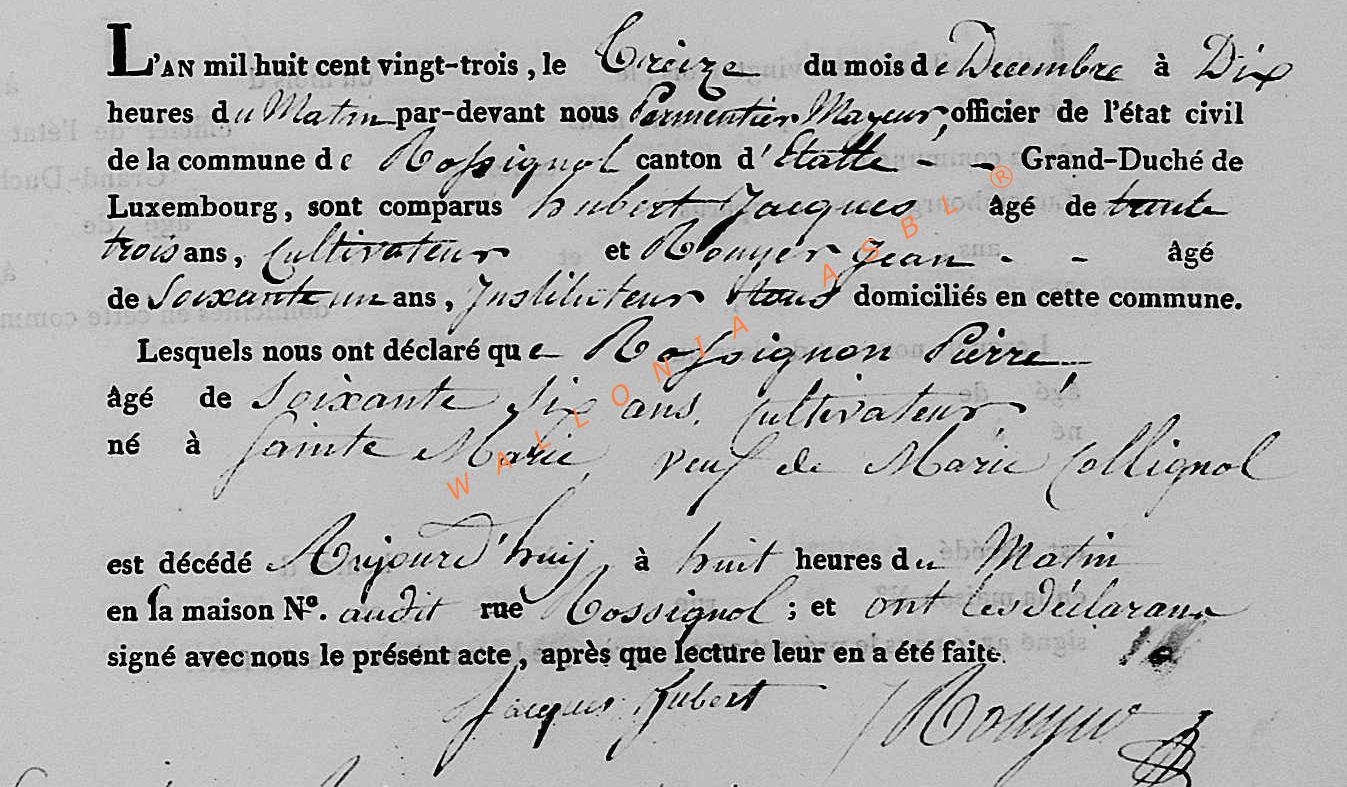 L'AN mil huit cent vingt-trois, le Treize du mois de Decembre à Dix
heures du Matin par-devant nous Parmentier Mayeur, officier de l'état civil
de la commune de Rossignol canton d'Etalle - - Grand-Duché de
Luxembourg, sont comparus hubert Jacques âgé de trente
trois ans, Cultivateur et Rouyer Jean - - âgé
de Soixante un ans, Instituteur tous domiciliés en cette commune.
Lesquels nous ont déclaré que Rossignon Pierre,
âgé de Soixante Six ans, Cultivateur
né à Sainte Marie, veuf de Marie Collignol
est décédé Aujourd'huij à huit heures du Matin
en la maison Nº. audit rue Rossignol ; et ont les déclarans
signé avec nous le présent acte, après que lecture leur en a été faite.
Jacques hubert JRouyer
WALLONIA ASBL ®